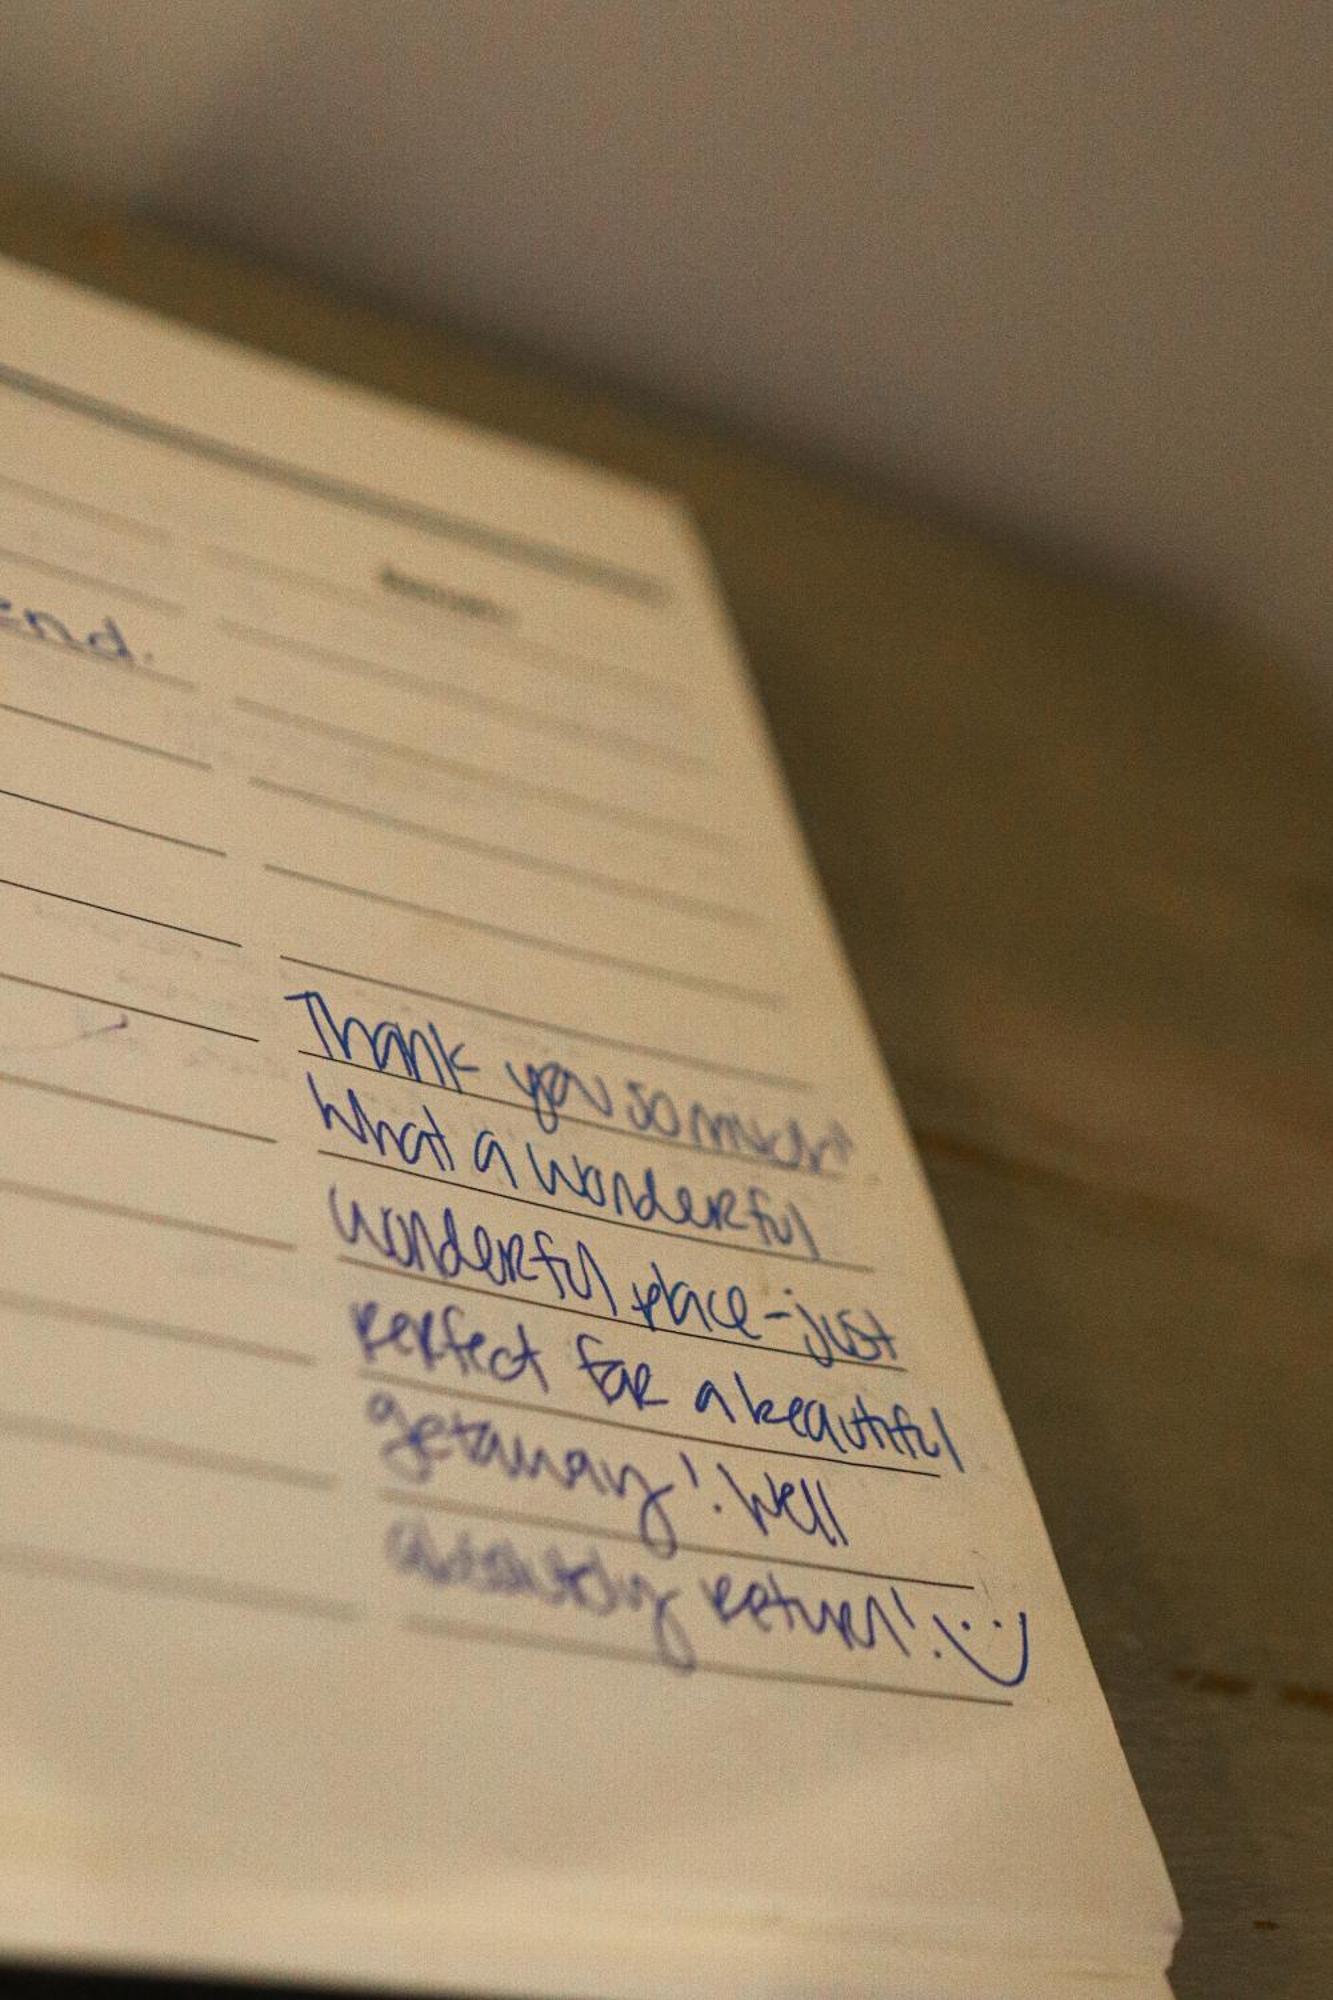 end.
Thank you so much!
What a wonderful
wonderful place - just
perfect for a beautiful
getaway! Well
absolutely return! :)